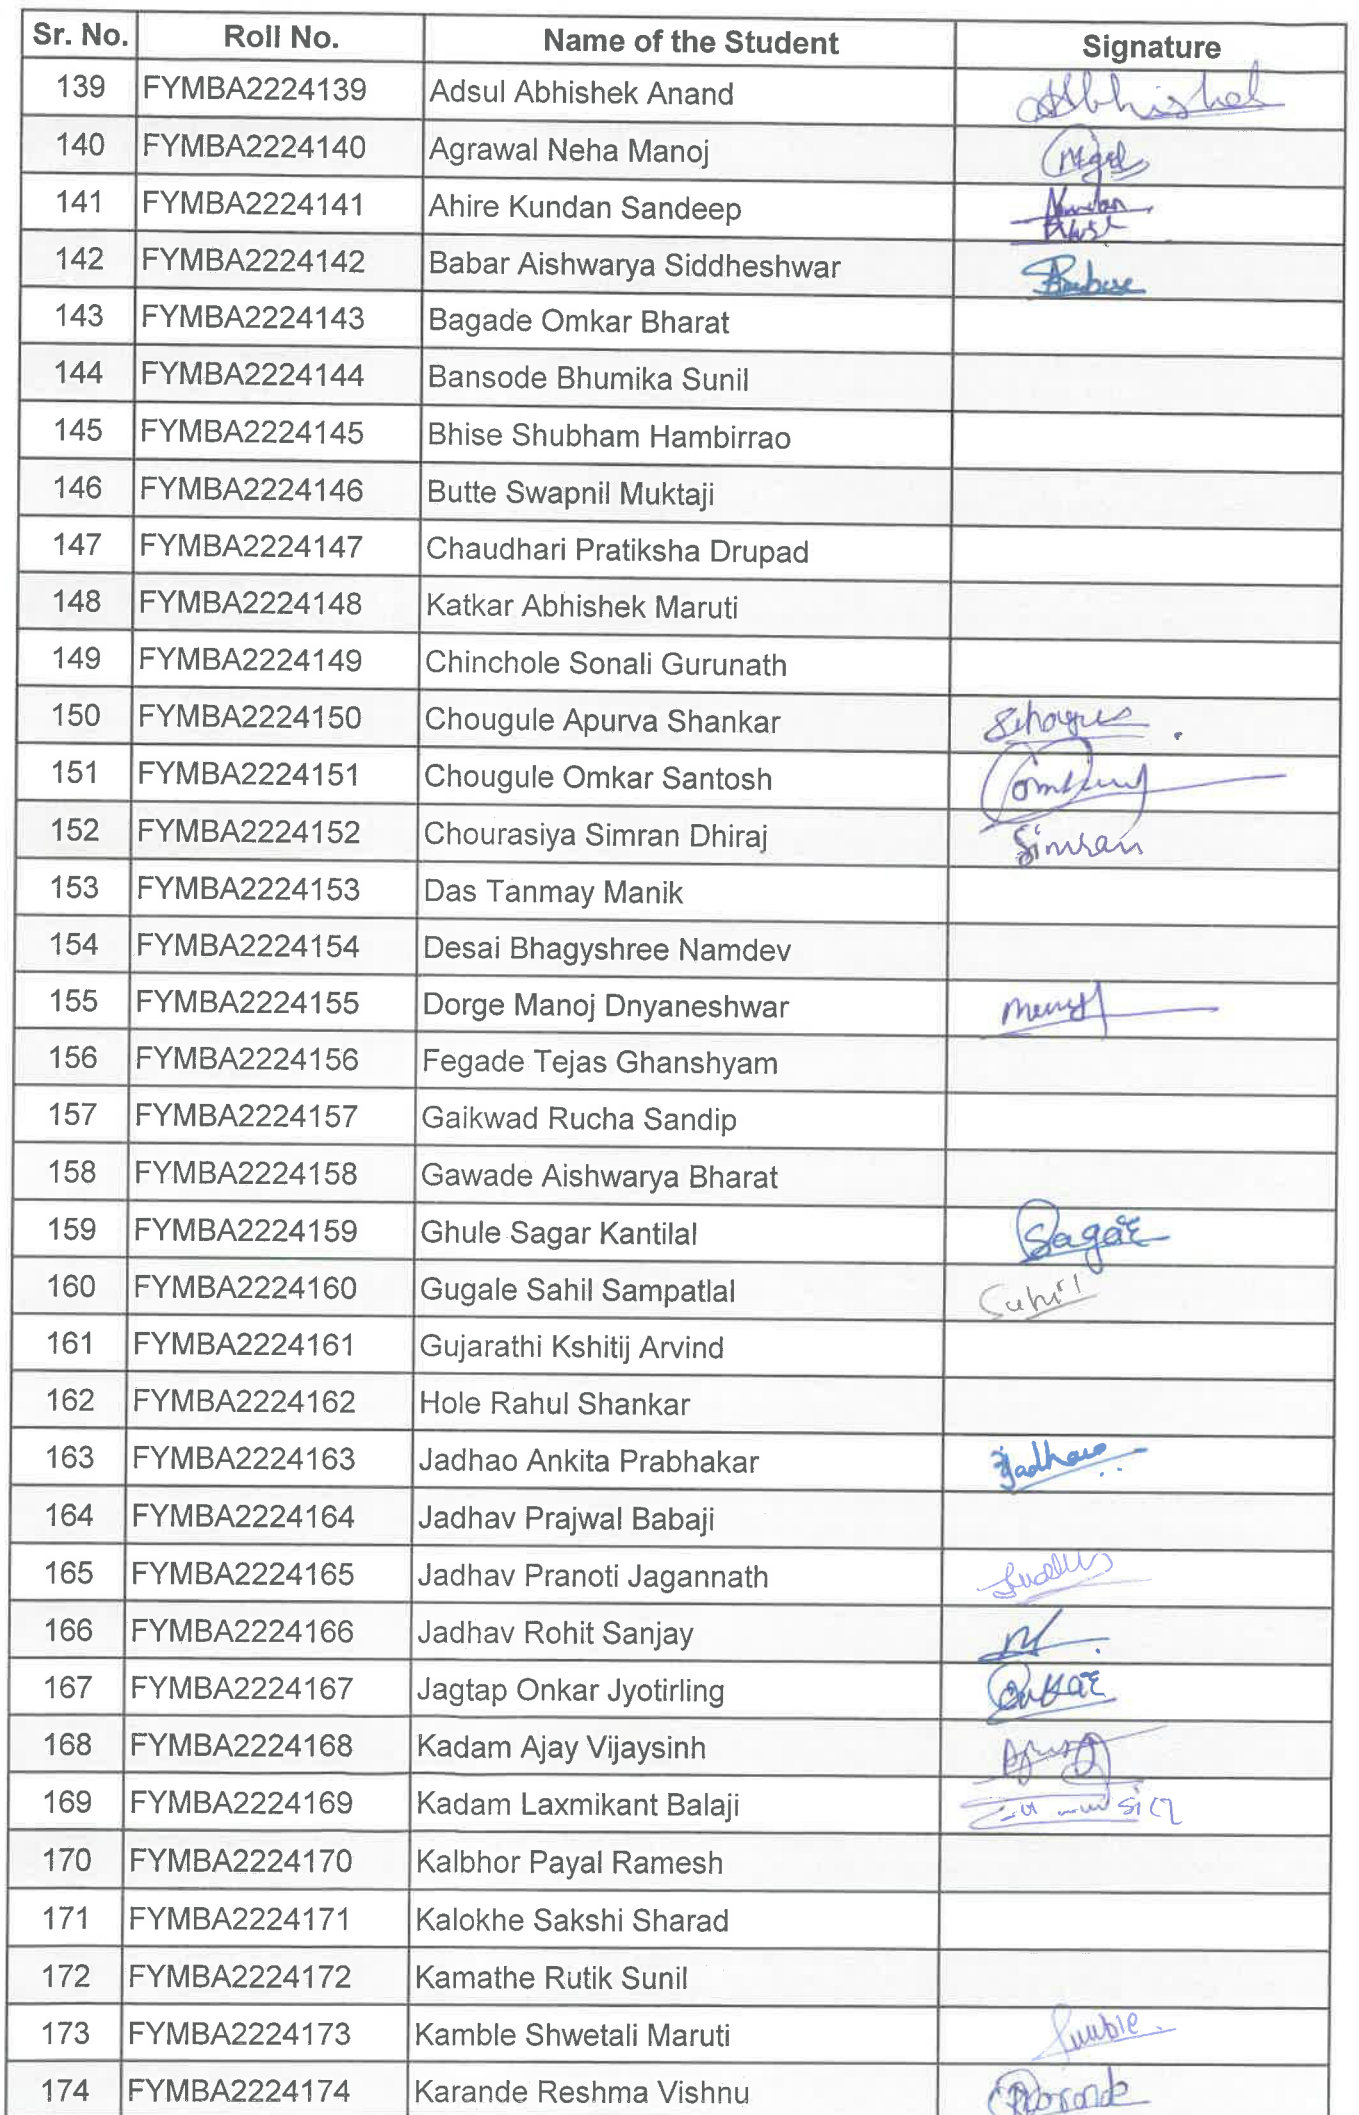 Sr. No. Roll No. Name of the Student Signature
139 FYMBA2224139 Adsul Abhishek Anand Abhishek
140 FYMBA2224140 Agrawal Neha Manoj
141 FYMBA2224141 Ahire Kundan Sandeep
142 FYMBA2224142 Babar Aishwarya Siddheshwar
143 FYMBA2224143 Bagade Omkar Bharat
144 FYMBA2224144 Bansode Bhumika Sunil
145 FYMBA2224145 Bhise Shubham Hambirrao
146 FYMBA2224146 Butte Swapnil Muktaji
147 FYMBA2224147 Chaudhari Pratiksha Drupad
148 FYMBA2224148 Katkar Abhishek Maruti
149 FYMBA2224149 Chinchole Sonali Gurunath
150 FYMBA2224150 Chougule Apurva Shankar
151 FYMBA2224151 Chougule Omkar Santosh
152 FYMBA2224152 Chourasiya Simran Dhiraj Simran
153 FYMBA2224153 Das Tanmay Manik
154 FYMBA2224154 Desai Bhagyshree Namdev
155 FYMBA2224155 Dorge Manoj Dnyaneshwar
156 FYMBA2224156 Fegade Tejas Ghanshyam
157 FYMBA2224157 Gaikwad Rucha Sandip
158 FYMBA2224158 Gawade Aishwarya Bharat
159 FYMBA2224159 Ghule Sagar Kantilal Sagar
160 FYMBA2224160 Gugale Sahil Sampatlal Sahil
161 FYMBA2224161 Gujarathi Kshitij Arvind
162 FYMBA2224162 Hole Rahul Shankar
163 FYMBA2224163 Jadhao Ankita Prabhakar Jadhao
164 FYMBA2224164 Jadhav Prajwal Babaji
165 FYMBA2224165 Jadhav Pranoti Jagannath
166 FYMBA2224166 Jadhav Rohit Sanjay
167 FYMBA2224167 Jagtap Onkar Jyotirling Onkar
168 FYMBA2224168 Kadam Ajay Vijaysinh
169 FYMBA2224169 Kadam Laxmikant Balaji
170 FYMBA2224170 Kalbhor Payal Ramesh
171 FYMBA2224171 Kalokhe Sakshi Sharad
172 FYMBA2224172 Kamathe Rutik Sunil
173 FYMBA2224173 Kamble Shwetali Maruti
174 FYMBA2224174 Karande Reshma Vishnu